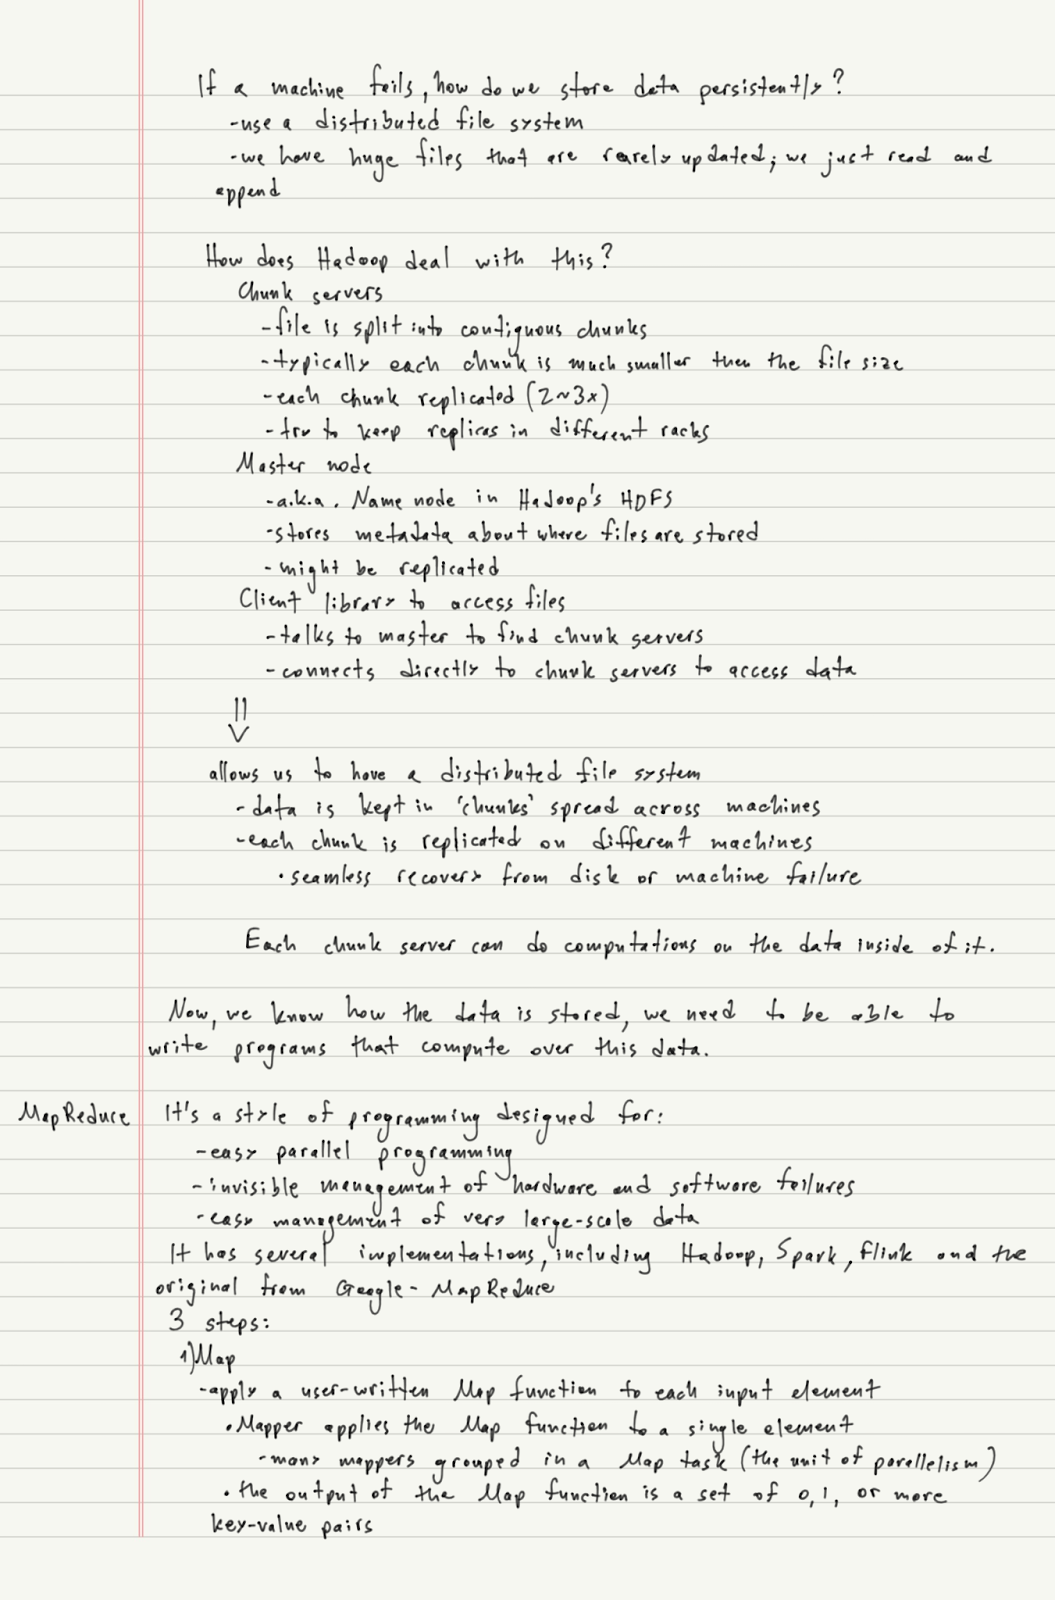 If a machine fails, how do we store data persistently?
-use a distributed file system
-we have huge files that are rarely updated; we just read and
append
How does Hadoop deal with this?
Chunk servers
-file is split into contiguous chunks
-typically each chunk is much smaller then the file size
-each chunk replicated (2~3x)
-try to keep replicas in different racks
Master node
-a.k.a. Name node in Hadoop's HDFS
-stores metadata about where files are stored
-might be replicated
Client library to access files
-talks to master to find chunk servers
-connects directly to chunk servers to access data
⇓
allows us to have a distributed file system
-data is kept in 'chunks' spread across machines
-each chunk is replicated on different machines
•seamless recovery from disk or machine failure
Each chunk server can do computations on the data inside of it.
Now, we know how the data is stored, we need to be able to
write programs that compute over this data.
MapReduce It's a style of programming designed for:
-easy parallel programming
-invisible management of hardware and software failures
-easy management of very large-scale data
It has several implementations, including Hadoop, Spark, Flink and the
original from Google- MapReduce
3 steps:
1)Map
-apply a user-written Map function to each input element
•Mapper applies the Map function to a single element
-many mappers grouped in a Map task (the unit of parallelism)
•the output of the Map function is a set of 0,1, or more
key-value pairs